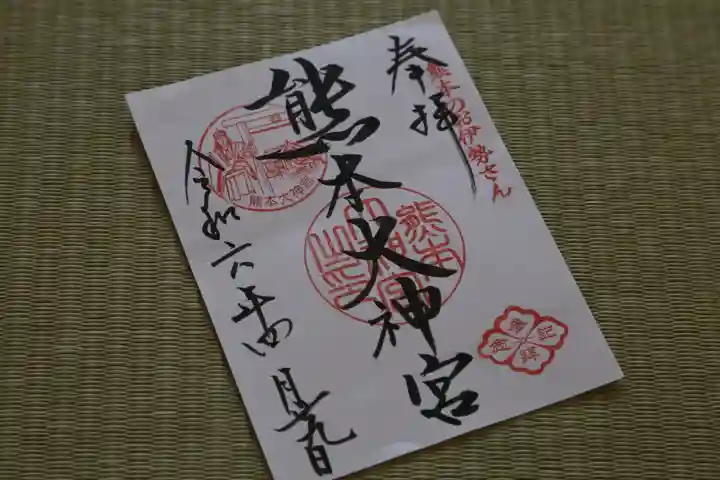 奉拝
熊本のお伊勢さん
熊本大神宮
熊本大神宮
熊本大神宮之印
参拝記念
令和六年四月十九日